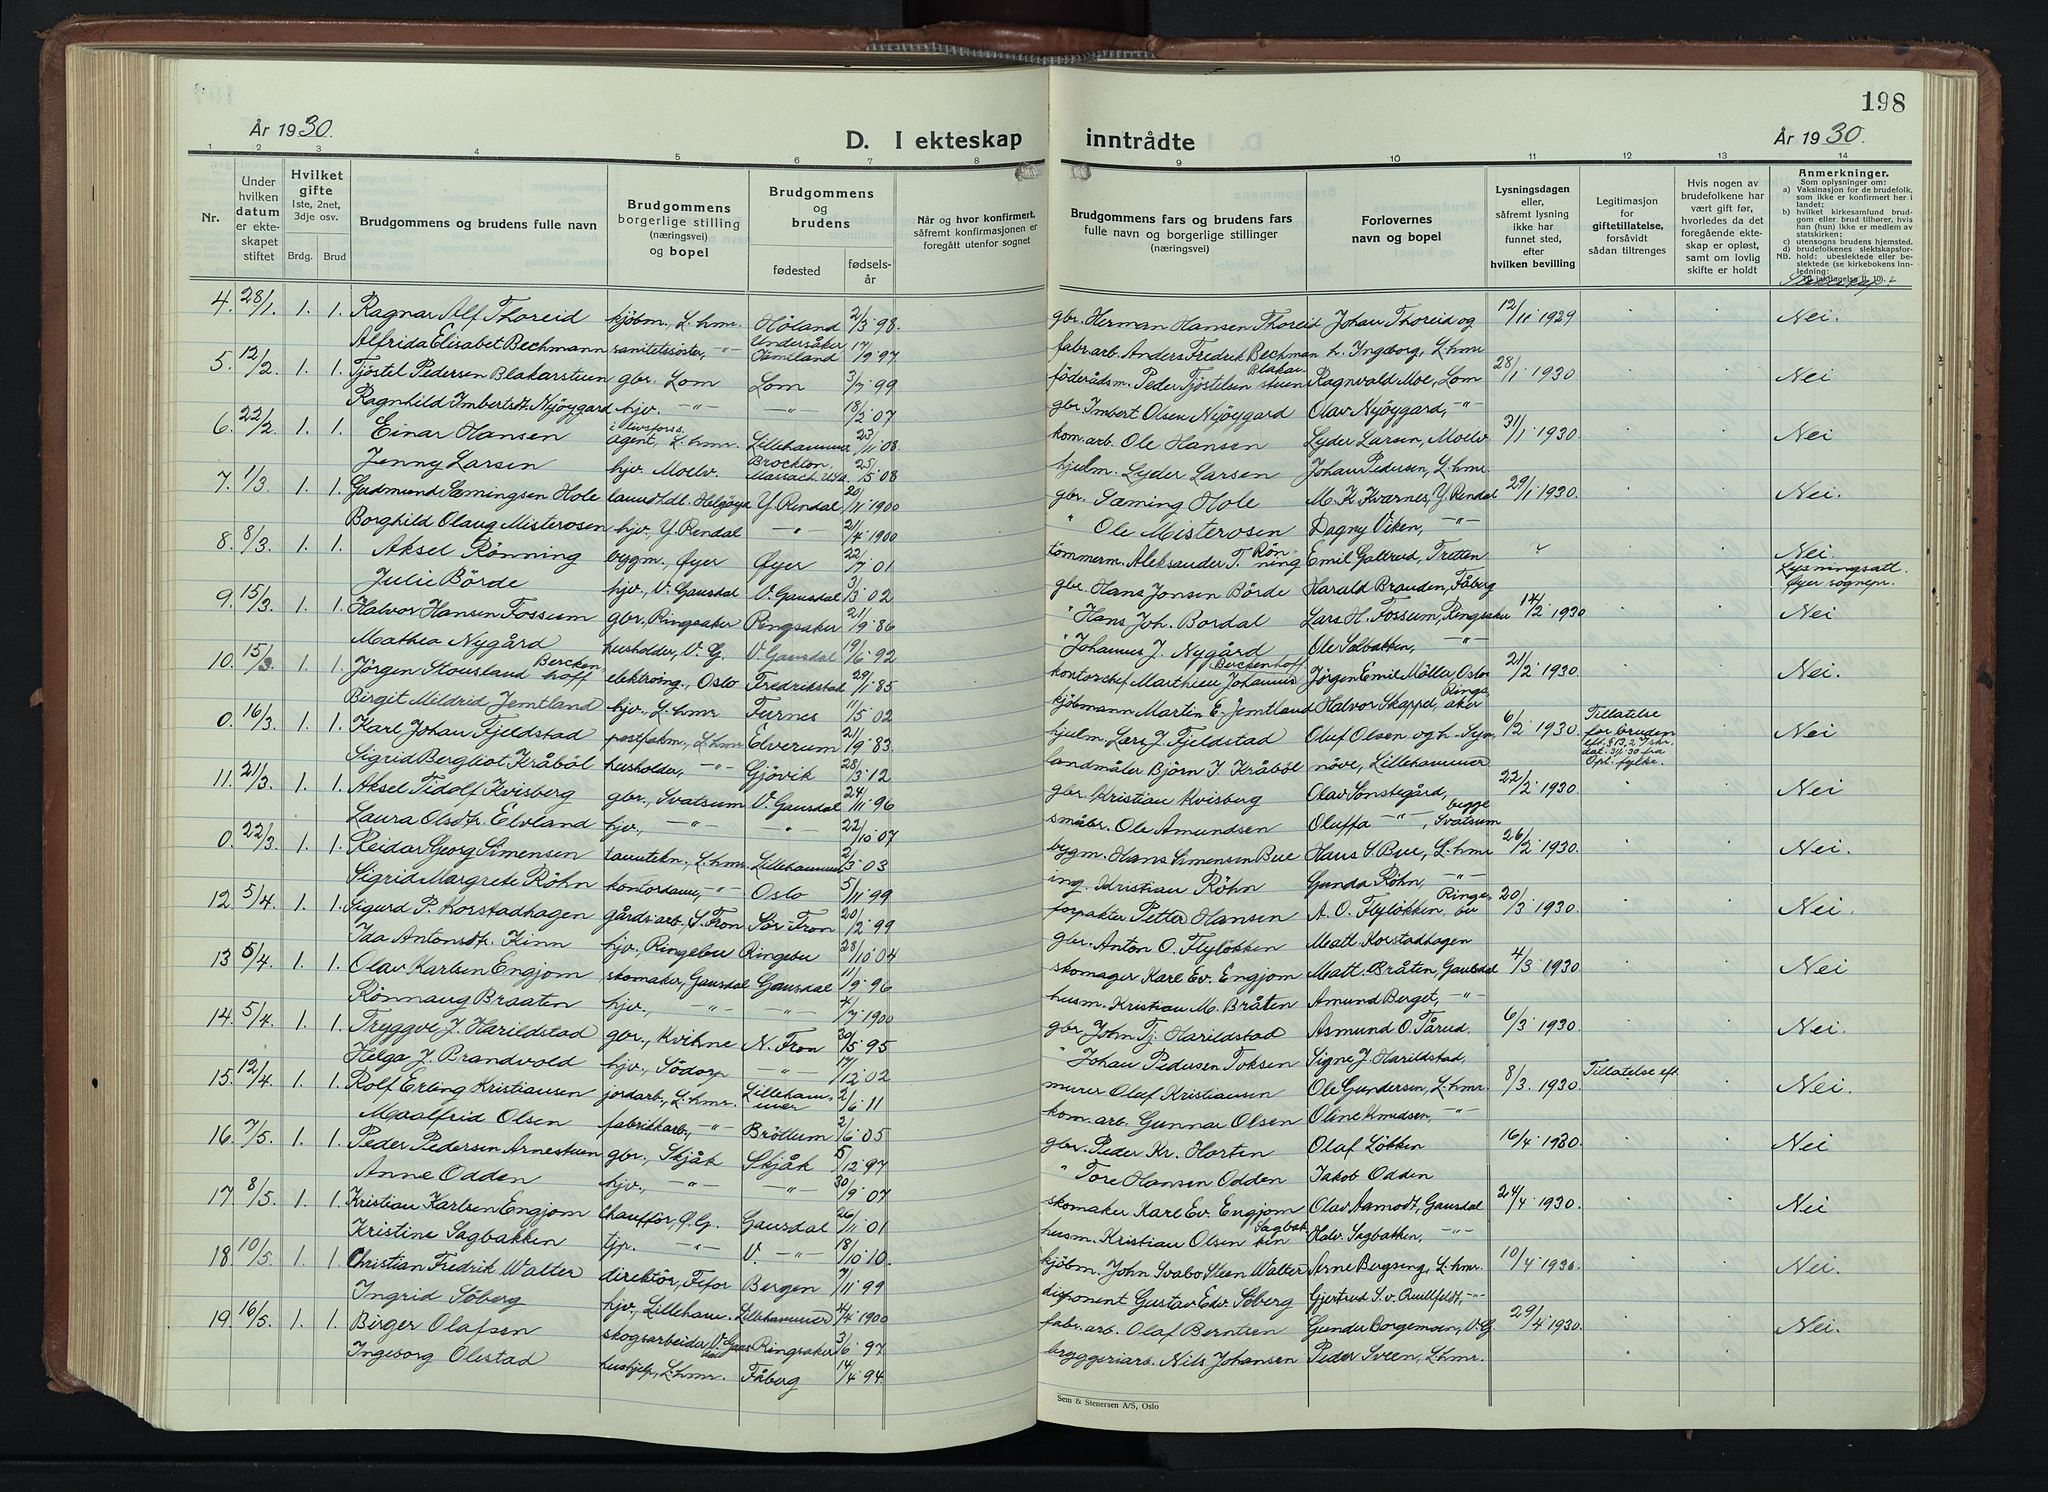 198
År 1930.
D. I ekteskap inntrådte
År 1930.
1 2 3 4 5 6 7 8 9 10 11 12 13 14
Nr.
Under hvilken datum er ekteskapet stiftet
Hvilket gifte 1ste, 2net, 3dje osv.
Brdg. Brud
Brudgommens og brudens fulle navn
Brudgommens borgerlige stilling (næringsvei) og bopel
Brudgommens og brudens
fødested
fødselsår
Når og hvor konfirmert, såfremt konfirmasjonen er foregått utenfor sognet
Brudgommens fars og brudens fars fulle navn og borgerlige stillinger (næringsvei)
Forlovernes navn og bopel
Lysningsdagen eller, såfremt lysning ikke har funnet sted, efter hvilken bevilling
Legitimasjon for giftetillatelse, forsåvidt sådan tiltrenges
Hvis nogen av brudefolkene har vært gift før, hvorledes da det foregående ekteskap er opløst, samt om lovlig skifte er holdt
Anmerkninger.
Som oplysninger om:
a) Vaksinasjon for de brudefolk, som ikke er konfirmert her i landet;
b) hvilket kirkesamfund brudgom eller brud tilhører, hvis han (hun) ikke er medlem av statskirken;
c) utensogns brudens hjemsted.
d) brudefolkenes slektskapsforhold: ubeslektede eller beslektede (se kirkebokens innledning:
4. 28/1. 1. 1. Ragnar Alf Thoreid kjøbm., L.hmr. Høland 2/3 98. gbr. Herman Hansen Thoreid Johan Thoreid og 12/11 1929 Nei.
Alfrida Elisabet Bechmann sanitetssøster, -"- Undersåker Jämtland 17/9 97 fabr.arb. Anders Fredrik Bechman h. Ingeborg, L.hmr
5. 12/2. 1. 1. Tjøstel Pedersen Blakarstuen gbr. Lom Lom 3/7 99 föderådsm. Peder Tjöstelsen Blakarstuen Ragnvald Moe, Lom 28/1 1930 Nei
Ragnhild Imbertsdt. Nyöygard hjv. -"- -"- 18/2 07 gbr. Imbert Olsen Nyöygard Olav Nyöygard, -"-
6. 22/2. 1. 1. Einar Hansen agent, L.hmr. Lillehammer 23/11 08. kom. arb. Ole Hansen Lyder Larsen, Moelv 31/1 1930 Nei
Jenny Larsen hjv. Moelv. Brockton, Massach. USA. 25/5 08 hjulm. Lyder Larsen Johan Pedersen, L.hmr.
7. 1/3. 1. 1. Gudmund Sæmingsen Hole landhdl. Helgöya Y. Rendal 20/11 1900 gbr. Sæming Hole M. K. Kvarnes, Y. Rendal 29/1 1930. Nei.
Borghild Olaug Misterosen hjv., Y. Rendal " 21/4 1900 " Ole Misterosen Dagny Viken, -"-
8. 8/3. 1. 1. Aksel Rönning bygm., Øyer Øyer 22/7 01 tömmerm. Aleksander T. Rönning Emil Gallrud, Tretten Nei.
Julie Börde hjv., V. Gausdal V. Gausdal 3/3 02 gbr. Hans Jonsen Börde Harald Brauden, Fåberg Lysningsatt. Øyer sognepr.
9. 15/3. 1. 1. Halvor Hansen Fossum gbr., Ringsaker Ringsaker 21/9 86 " Hans Joh. Bordal Lars H. Fossum, Ringsaker 14/2 1930 Nei
Mathea Nygård husholder, V. G. V. Gausdal 19/6 92 " Johannes J. Nygård Ole Solbakken, -"-
10. 15/3. 1. 1. Jörgen Stousland Berckenhoff elektroing., Oslo Fredrikstad 29/1 85 kontorchef Marthieu Johannes Berckenhoff Jørgen Emil Möller Oslo 21/2 1930 Nei.
Birgit Meldrid Jemtland hjv., L.hmr Furnes 11/5 02 kjöbmann Martin E. Jemtland Halvor Skappel, Ringsaker
0. 16/3. 1. 1. Karl Johan Fjeldstad postfakm., L.hmr Elverum 21/9 83 hjulm. Lars J. Fjeldstad Oluf Olsen og h. Syn- 6/2 1930. Tillatelse for bruden Nei
Sigrid Bergliot Kråböl husholder, -"- Gjövik 28/3 12 landmåler Björn J. Kråböl növe, Lillehammer Opl. fylke.
11. 21/3. 1. 1. Aksel Tidolf Kvisberg gbr., Svatsum V. Gausdal 24/11 96 gbr. Kristian Kvisberg Olav Sönstegård, 22/2 1930 Nei
Laura Olsdtr. Elvland hjv., -"- " 22/10 07 småbr. Ole Amundsen Oluffa -"-, begge Svatsum
0. 22/3. 1. 1. Reidar Georg Simensen tanntekn., L.hmr Lillehammer 2/3 03 bygm. Hans Simensen Bue Hans S. Bue, L.hmr 26/2 1930. Nei.
Sigrid Margrete Röhn kontordame, -"- Oslo 5/11 99 ing. Kristian Röhn Gunda Röhn, -"-
12. 5/4. 1. 1. Sigurd P. Korstadhagen gårdsarb., S. Fron Sör-Fron 20/12 99 forpakter Petter Hansen A. O. Flyløkken, Ringebu 20/3 1930 Nei.
Ida Antonsdtr. Kinn hjv., Ringebu Ringebu 28/10 04 gbr. Anton O. Flylökken Matt. Korstadhagen
13 5/4. 1. 1. Olav Karlsen Engjom skomaker, Gausdal Gausdal 11/9 96 skomager Karl Ev. Engjom Matt. Bråten, Gausdal 4/3 1930 Nei
Rönnaug Braaten hjv., -"- -"- 4/7 1900 husm. Kristian M. Bråten Amund Berget, -"-
14. 5/4. 1. 1. Tryggve J. Harildstad gbr., Kvikne N. Fron 30/5 95 gbr. John Tj. Harildstad Asmund O. Tårud. 6/3 1930. Nei.
Helga J. Brandvold hjv., Södorp -"- 17/12 02 " Johan Pedersen Toksen Signe J. Harildstad,
15. 12/4. 1. 1. Rolf Erling Kristiansen jordarb., L.hmr. Lillehammer 2/6 11 murer Olaf Kristiansen Ole Gundersen, L.hmr. 8/3. 1930. Tillatelse eft. Nei.
Maalfrid Olsen fabrikkarb., -"- Bröttum 2/6 05 kom. arb. Gunnar Olsen Oline Knudsen, -"-
16 7/5. 1. 1. Peder Pedersen Arnestuen gbr., Skjåk Skjåk 5/12 97 gbr. Peder Kr. Horten Olaf Lökken 16/4 1930 Nei
Anne Odden hjv., -"- -"- 30/9 07 " Tore Hansen Odden Jakob Odden
17 8/5. 1. 1. Kristian Karlsen Engjom Chauffør, Ø. G. Gausdal 26/11 01 skomaker Karl Ev. Engjom Olav Aamodt, Gausdal 24/4 1930. Nei
Kristine Sagbakken tjp. -"- V. -"- 18/10 10. husm. Kristian Olsen Sagbakken Halv. Sagbakken, -"-
18 10/5. 1. 1. Christian Fredrik Walter direktör, Fefor Bergen 7/11 99 kjöbm. John Svabo Steen Walter Arne Bergseng, L.hmr. 10/4 1930. Nei.
Ingrid Söberg hjv., Lilleham. Lillehammer 4/4 1900 disponent Gustav Edv. Söberg Gjertrud S. v. Quillfeldt, -"-
19. 16/5. 1. 1. Birger Olafsen skogsarbeider V. Gausdal Ringsaker 3/6 97 fabr. arb. Olaf Berntsen Gunder Borgemoen, V. G 29/4 1930. Nei.
Ingeborg Olestad hushjelp, L.hmr. Fåberg 14/4 94 bryggeriarb. Nils Johansen Peder Sveen, L.hmr.
Sem & Stenersen A/S, Oslo